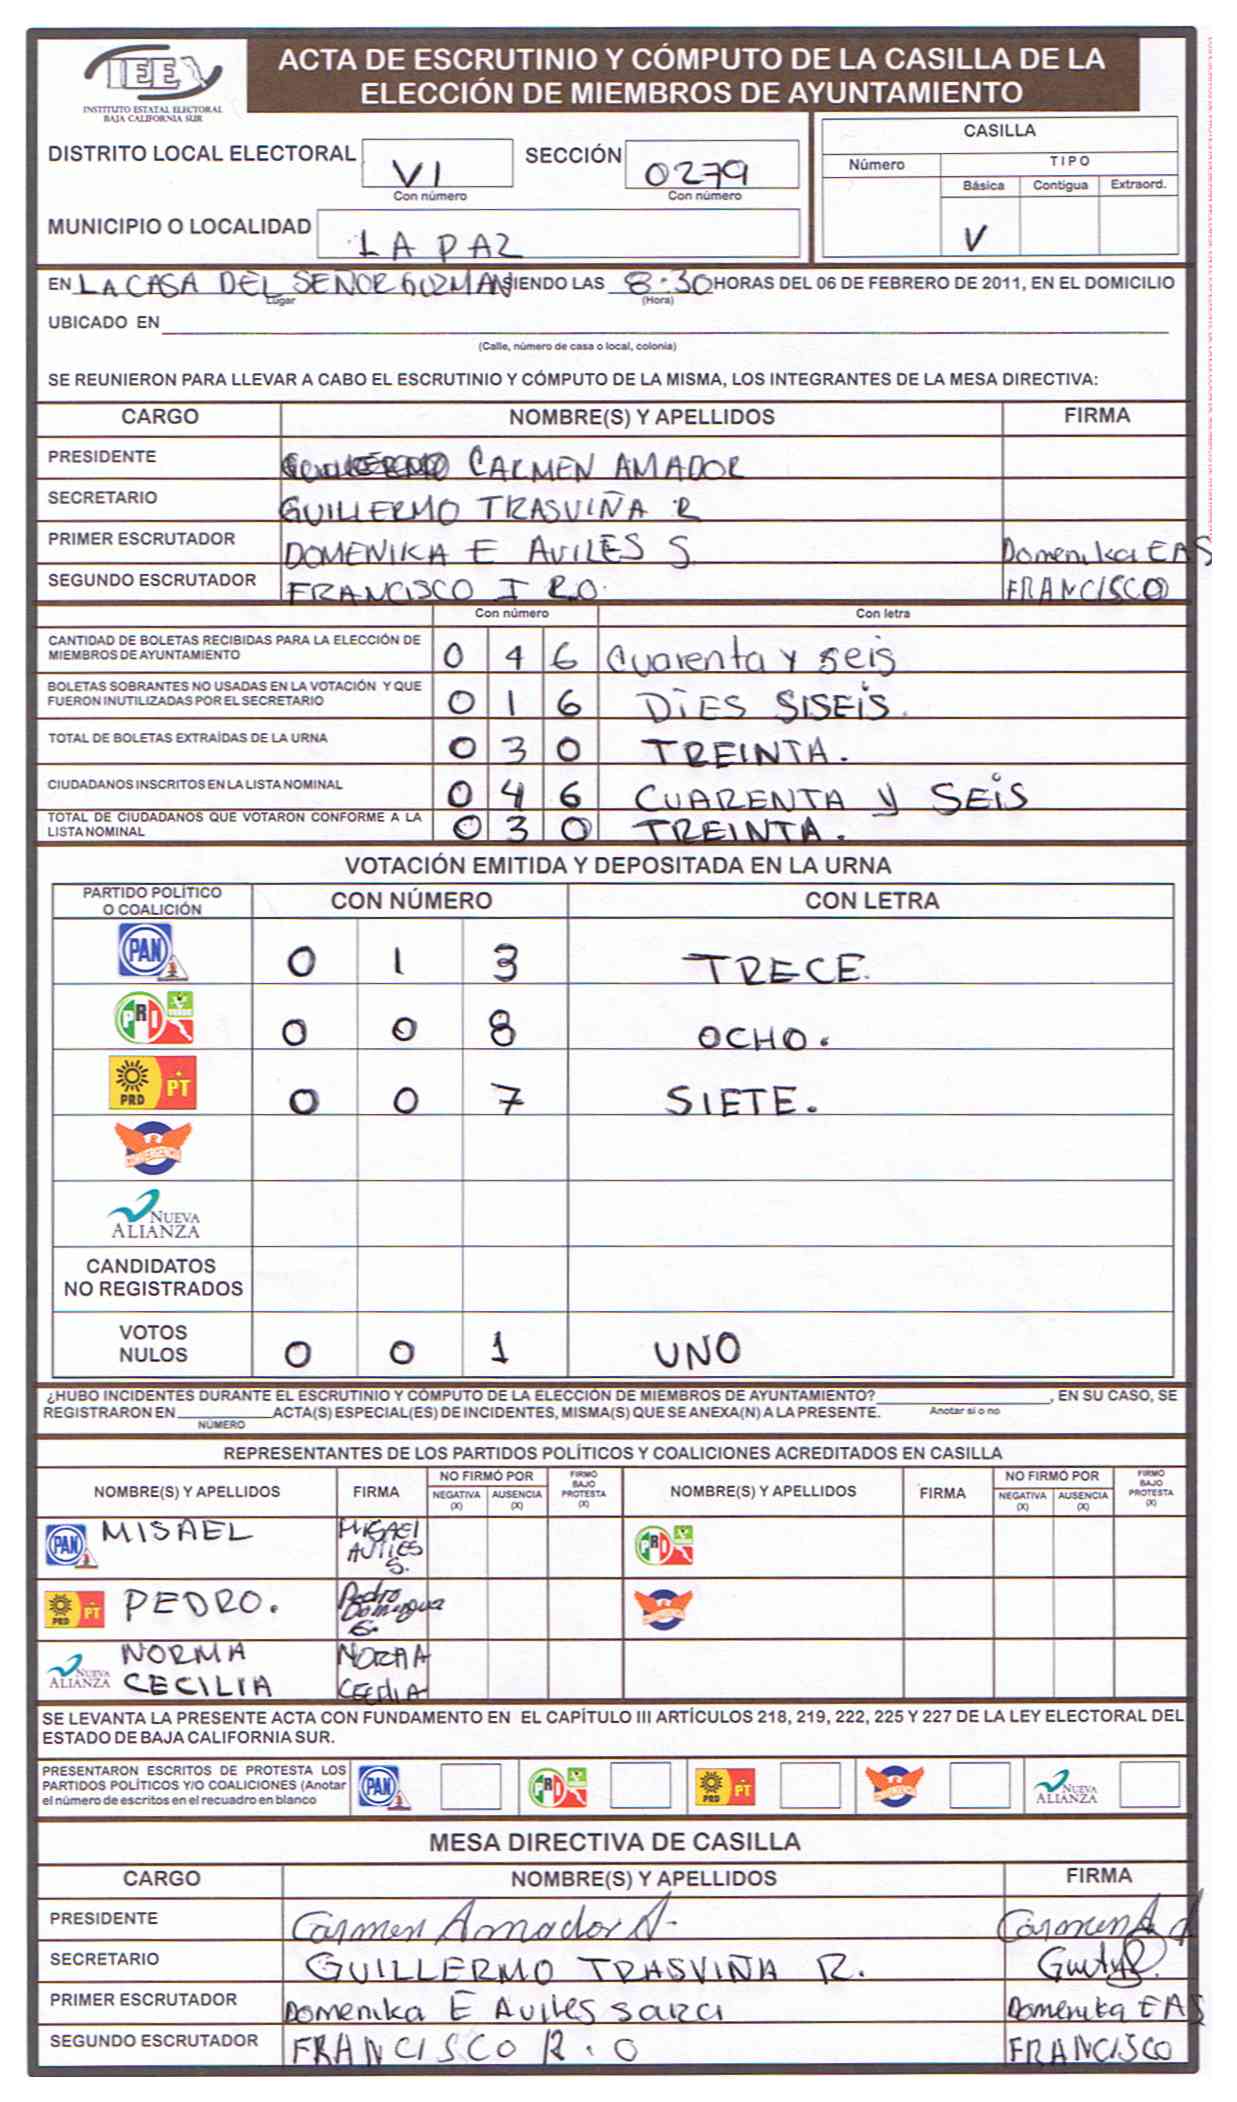 IEE
INSTITUTO ESTATAL ELECTORAL
BAJA CALIFORNIA SUR
ACTA DE ESCRUTINIO Y CÓMPUTO DE LA CASILLA DE LA
ELECCIÓN DE MIEMBROS DE AYUNTAMIENTO
DISTRITO LOCAL ELECTORAL VI SECCIÓN 0279
Con número Con número
MUNICIPIO O LOCALIDAD LA PAZ
CASILLA
Número TIPO
Básica Contigua Extraord.
V
EN LA CASA DEL SEÑOR GUZMAN SIENDO LAS 8:30 HORAS DEL 06 DE FEBRERO DE 2011, EN EL DOMICILIO
Lugar (Hora)
UBICADO EN
(Calle, número de casa o local, colonia)
SE REUNIERON PARA LLEVAR A CABO EL ESCRUTINIO Y CÓMPUTO DE LA MISMA, LOS INTEGRANTES DE LA MESA DIRECTIVA:
CARGO NOMBRE(S) Y APELLIDOS FIRMA
PRESIDENTE CARMEN AMADOR
SECRETARIO GUILLERMO TRASVIÑA R
PRIMER ESCRUTADOR DOMENIKA E AVILES S. Domenika EAS
SEGUNDO ESCRUTADOR FRANCISCO I R.O. FRANCISCO
Con número Con letra
CANTIDAD DE BOLETAS RECIBIDAS PARA LA ELECCIÓN DE
MIEMBROS DE AYUNTAMIENTO 0 4 6 Cuarenta y seis
BOLETAS SOBRANTES NO USADAS EN LA VOTACIÓN Y QUE
FUERON INUTILIZADAS POR EL SECRETARIO 0 1 6 DIES SISEIS.
TOTAL DE BOLETAS EXTRAÍDAS DE LA URNA 0 3 0 TREINTA.
CIUDADANOS INSCRITOS EN LA LISTA NOMINAL 0 4 6 CUARENTA Y SEIS
TOTAL DE CIUDADANOS QUE VOTARON CONFORME A LA
LISTA NOMINAL 0 3 0 TREINTA.
VOTACIÓN EMITIDA Y DEPOSITADA EN LA URNA
PARTIDO POLÍTICO
O COALICIÓN CON NÚMERO CON LETRA
PAN 0 1 3 TRECE.
PRI VERDE 0 0 8 OCHO.
PRD PT 0 0 7 SIETE.
CONVERGENCIA
NUEVA
ALIANZA
CANDIDATOS
NO REGISTRADOS
VOTOS
NULOS 0 0 1 UNO
¿HUBO INCIDENTES DURANTE EL ESCRUTINIO Y CÓMPUTO DE LA ELECCIÓN DE MIEMBROS DE AYUNTAMIENTO? , EN SU CASO, SE
REGISTRARON EN ACTA(S) ESPECIAL(ES) DE INCIDENTES, MISMA(S) QUE SE ANEXA(N) A LA PRESENTE. Anotar si o no
NÚMERO
REPRESENTANTES DE LOS PARTIDOS POLÍTICOS Y COALICIONES ACREDITADOS EN CASILLA
NOMBRE(S) Y APELLIDOS FIRMA NO FIRMÓ POR NEGATIVA (X) AUSENCIA (X) FIRMÓ BAJO PROTESTA (X) NOMBRE(S) Y APELLIDOS FIRMA NO FIRMÓ POR NEGATIVA (X) AUSENCIA (X) FIRMÓ BAJO PROTESTA (X)
PAN MISAEL MISAEL S. PRI
PRD PT PEDRO. Pedro
NUEVA ALIANZA NORMA NORMA
CECILIA CECILIA
SE LEVANTA LA PRESENTE ACTA CON FUNDAMENTO EN EL CAPÍTULO III ARTÍCULOS 218, 219, 222, 225 Y 227 DE LA LEY ELECTORAL DEL
ESTADO DE BAJA CALIFORNIA SUR.
PRESENTARON ESCRITOS DE PROTESTA LOS
PARTIDOS POLÍTICOS Y/O COALICIONES (Anotar
el número de escritos en el recuadro en blanco
PAN PRI PRD PT NUEVA ALIANZA
MESA DIRECTIVA DE CASILLA
CARGO NOMBRE(S) Y APELLIDOS FIRMA
PRESIDENTE Carmen Amador A. Carmen A
SECRETARIO GUILLERMO TRASVIÑA R.
PRIMER ESCRUTADOR Domenika E Aviles Domenika EAS
SEGUNDO ESCRUTADOR FRANCISCO R. O FRANCISCO